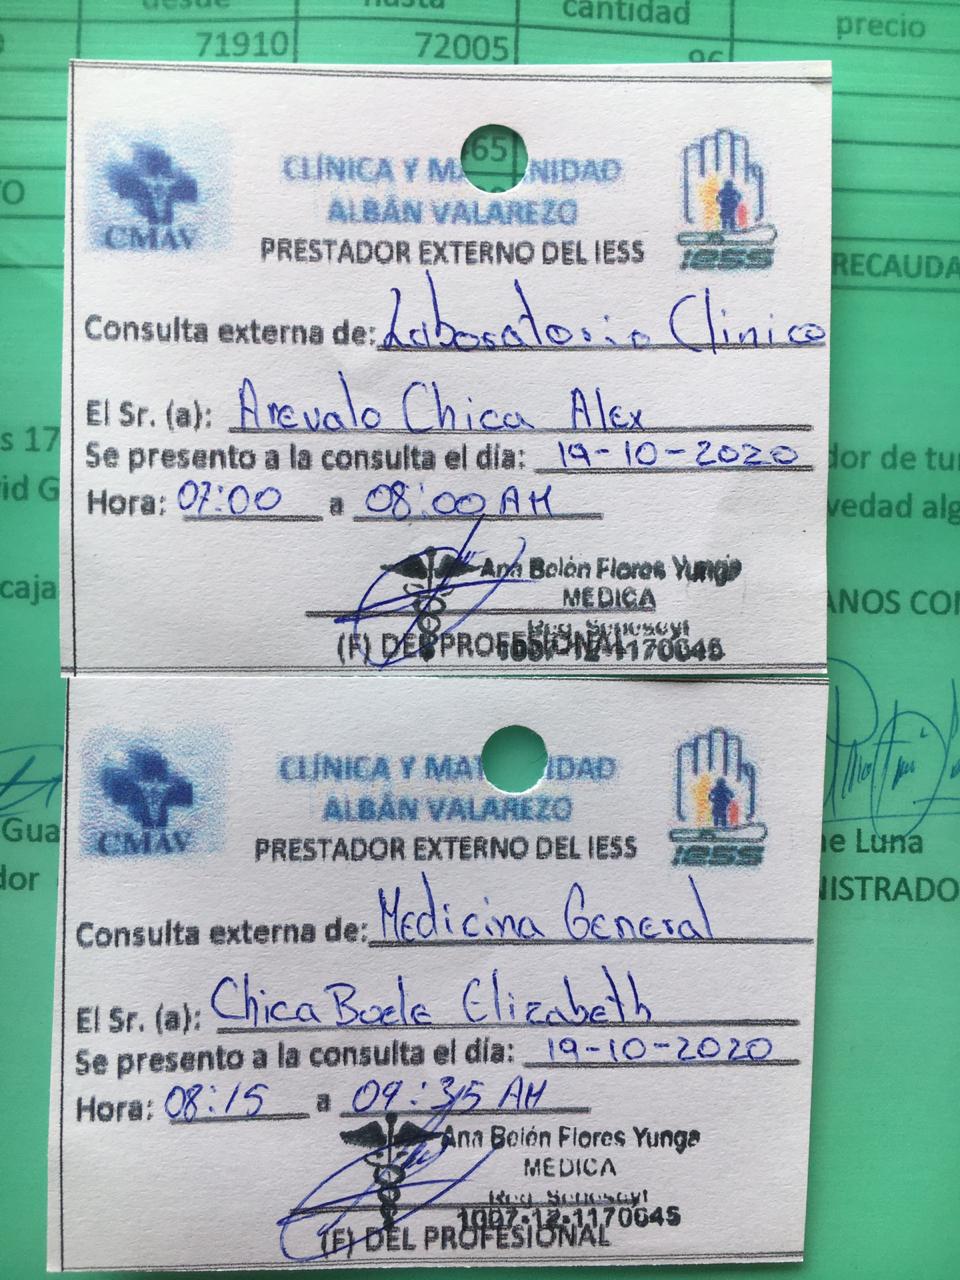 desde hasta cantidad precio
71910 72005 96
65
RECAUDA
CMAV
CLÍNICA Y MA NIDAD
ALBÁN VALAREZO
PRESTADOR EXTERNO DEL IESS
IESS
Consulta externa de: Laboratorio Clinico
El Sr. (a): Arevalo Chica Alex
Se presento a la consulta el día: 19-10-2020
Hora: 07:00 a 08:00 AM
Ana Belén Flores Yunga
MEDICA
Reg. Senescyt
1007-12-1170645
(F) DEL PROFESIONAL
s 17
dor de tu
vid G
vedad alg
caja
ANOS CO
CMAV
CLÍNICA Y MAT IDAD
ALBÁN VALAREZO
PRESTADOR EXTERNO DEL IESS
IESS
Consulta externa de: Medicina General
El Sr. (a): Chica Boele Elizabeth
Se presento a la consulta el día: 19-10-2020
Hora: 08:15 a 09:35 AM
Ana Belén Flores Yunga
MEDICA
Reg. Senescyt
1007-12-1170645
(F) DEL PROFESIONAL
Gua
e Luna
dor
NISTRADO